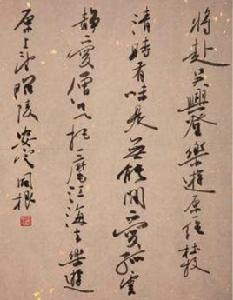 將赴吳興登樂遊原絕杜牧
清時有味是無能閒愛孤雲
靜愛僧欲把一麾江海去樂遊
原上望昭陵